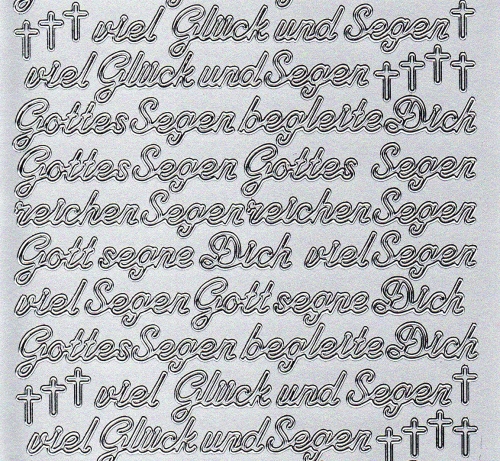 viel Glück und Segen
viel Glück und Segen
Gottes Segen begleite Dich
Gottes Segen Gottes Segen
reichen Segen reichen Segen
Gott segne Dich viel Segen
viel Segen Gott segne Dich
Gottes Segen begleite Dich
viel Glück und Segen
viel Glück und Segen